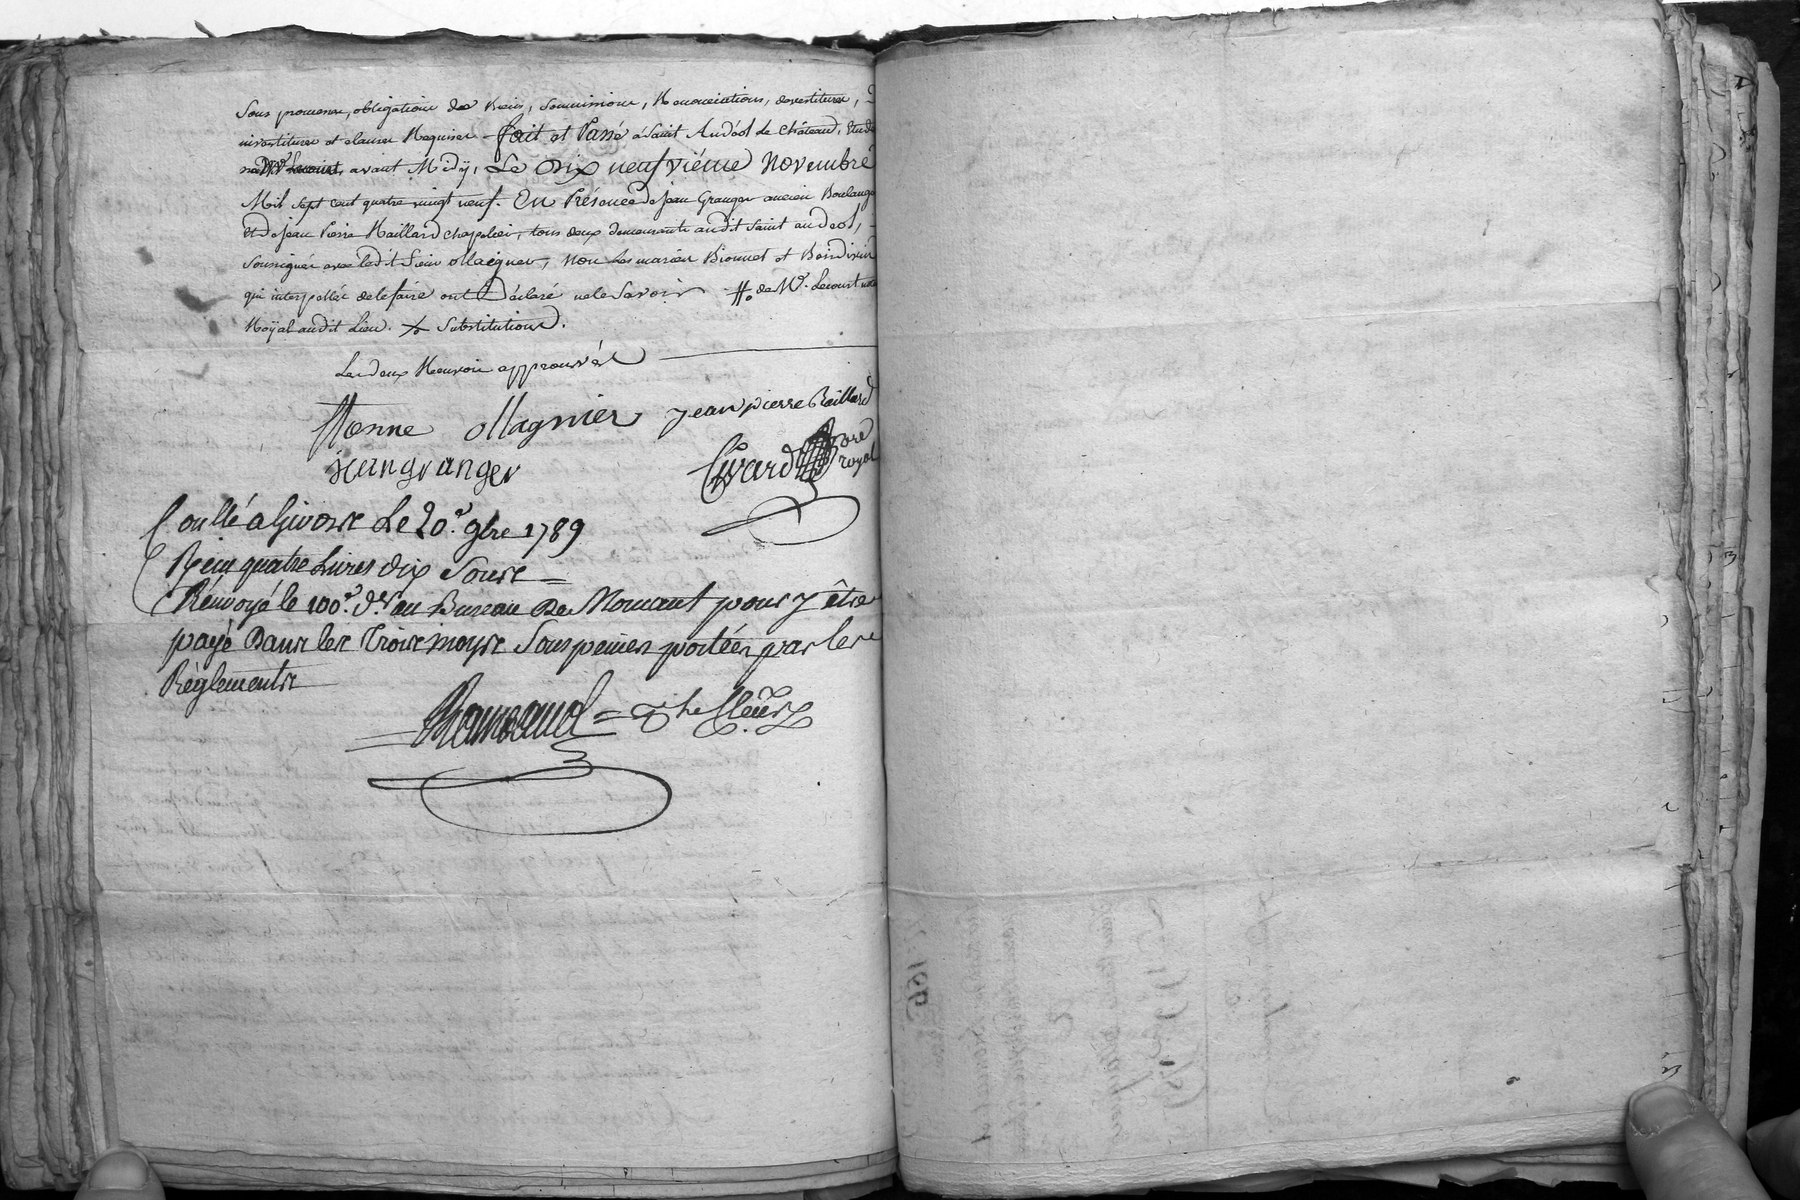 Sous promesse, obligation des Biens, soumissions, Renonciations, devestitures,
investitures et clauses Requises fait et Passé à Saint Andéol le Château, Etude
avant Midÿ, Le Dix neufviéme Novembre
Mil sept cent quatre vingt neuf. En Présence de jean Granger ancien Boulanger
Et de jean Pierre Raillard chapelier, tous deux demeurants audit saint andeol,
soussignés avec ledit Sieur Magnier, non les mariés Bionnet et Boindivin
qui interpellés de le faire ont Déclaré ne le Savoir #. de Me. Lecourt notre
Royal audit Lieu. x Substitutions.
Les deux Renvois approuvés
Magnier jean pierre Raillard
jean granger
Girard nore royal
Conllé a Givors Le 20e. 9bre 1789
Reçu quatre Livres dix Sous
Renvoyé le 100e. dr. au Bureau De Mornant pour y être
payé Dans les Trois moys Sous peines portées par les
Règlements